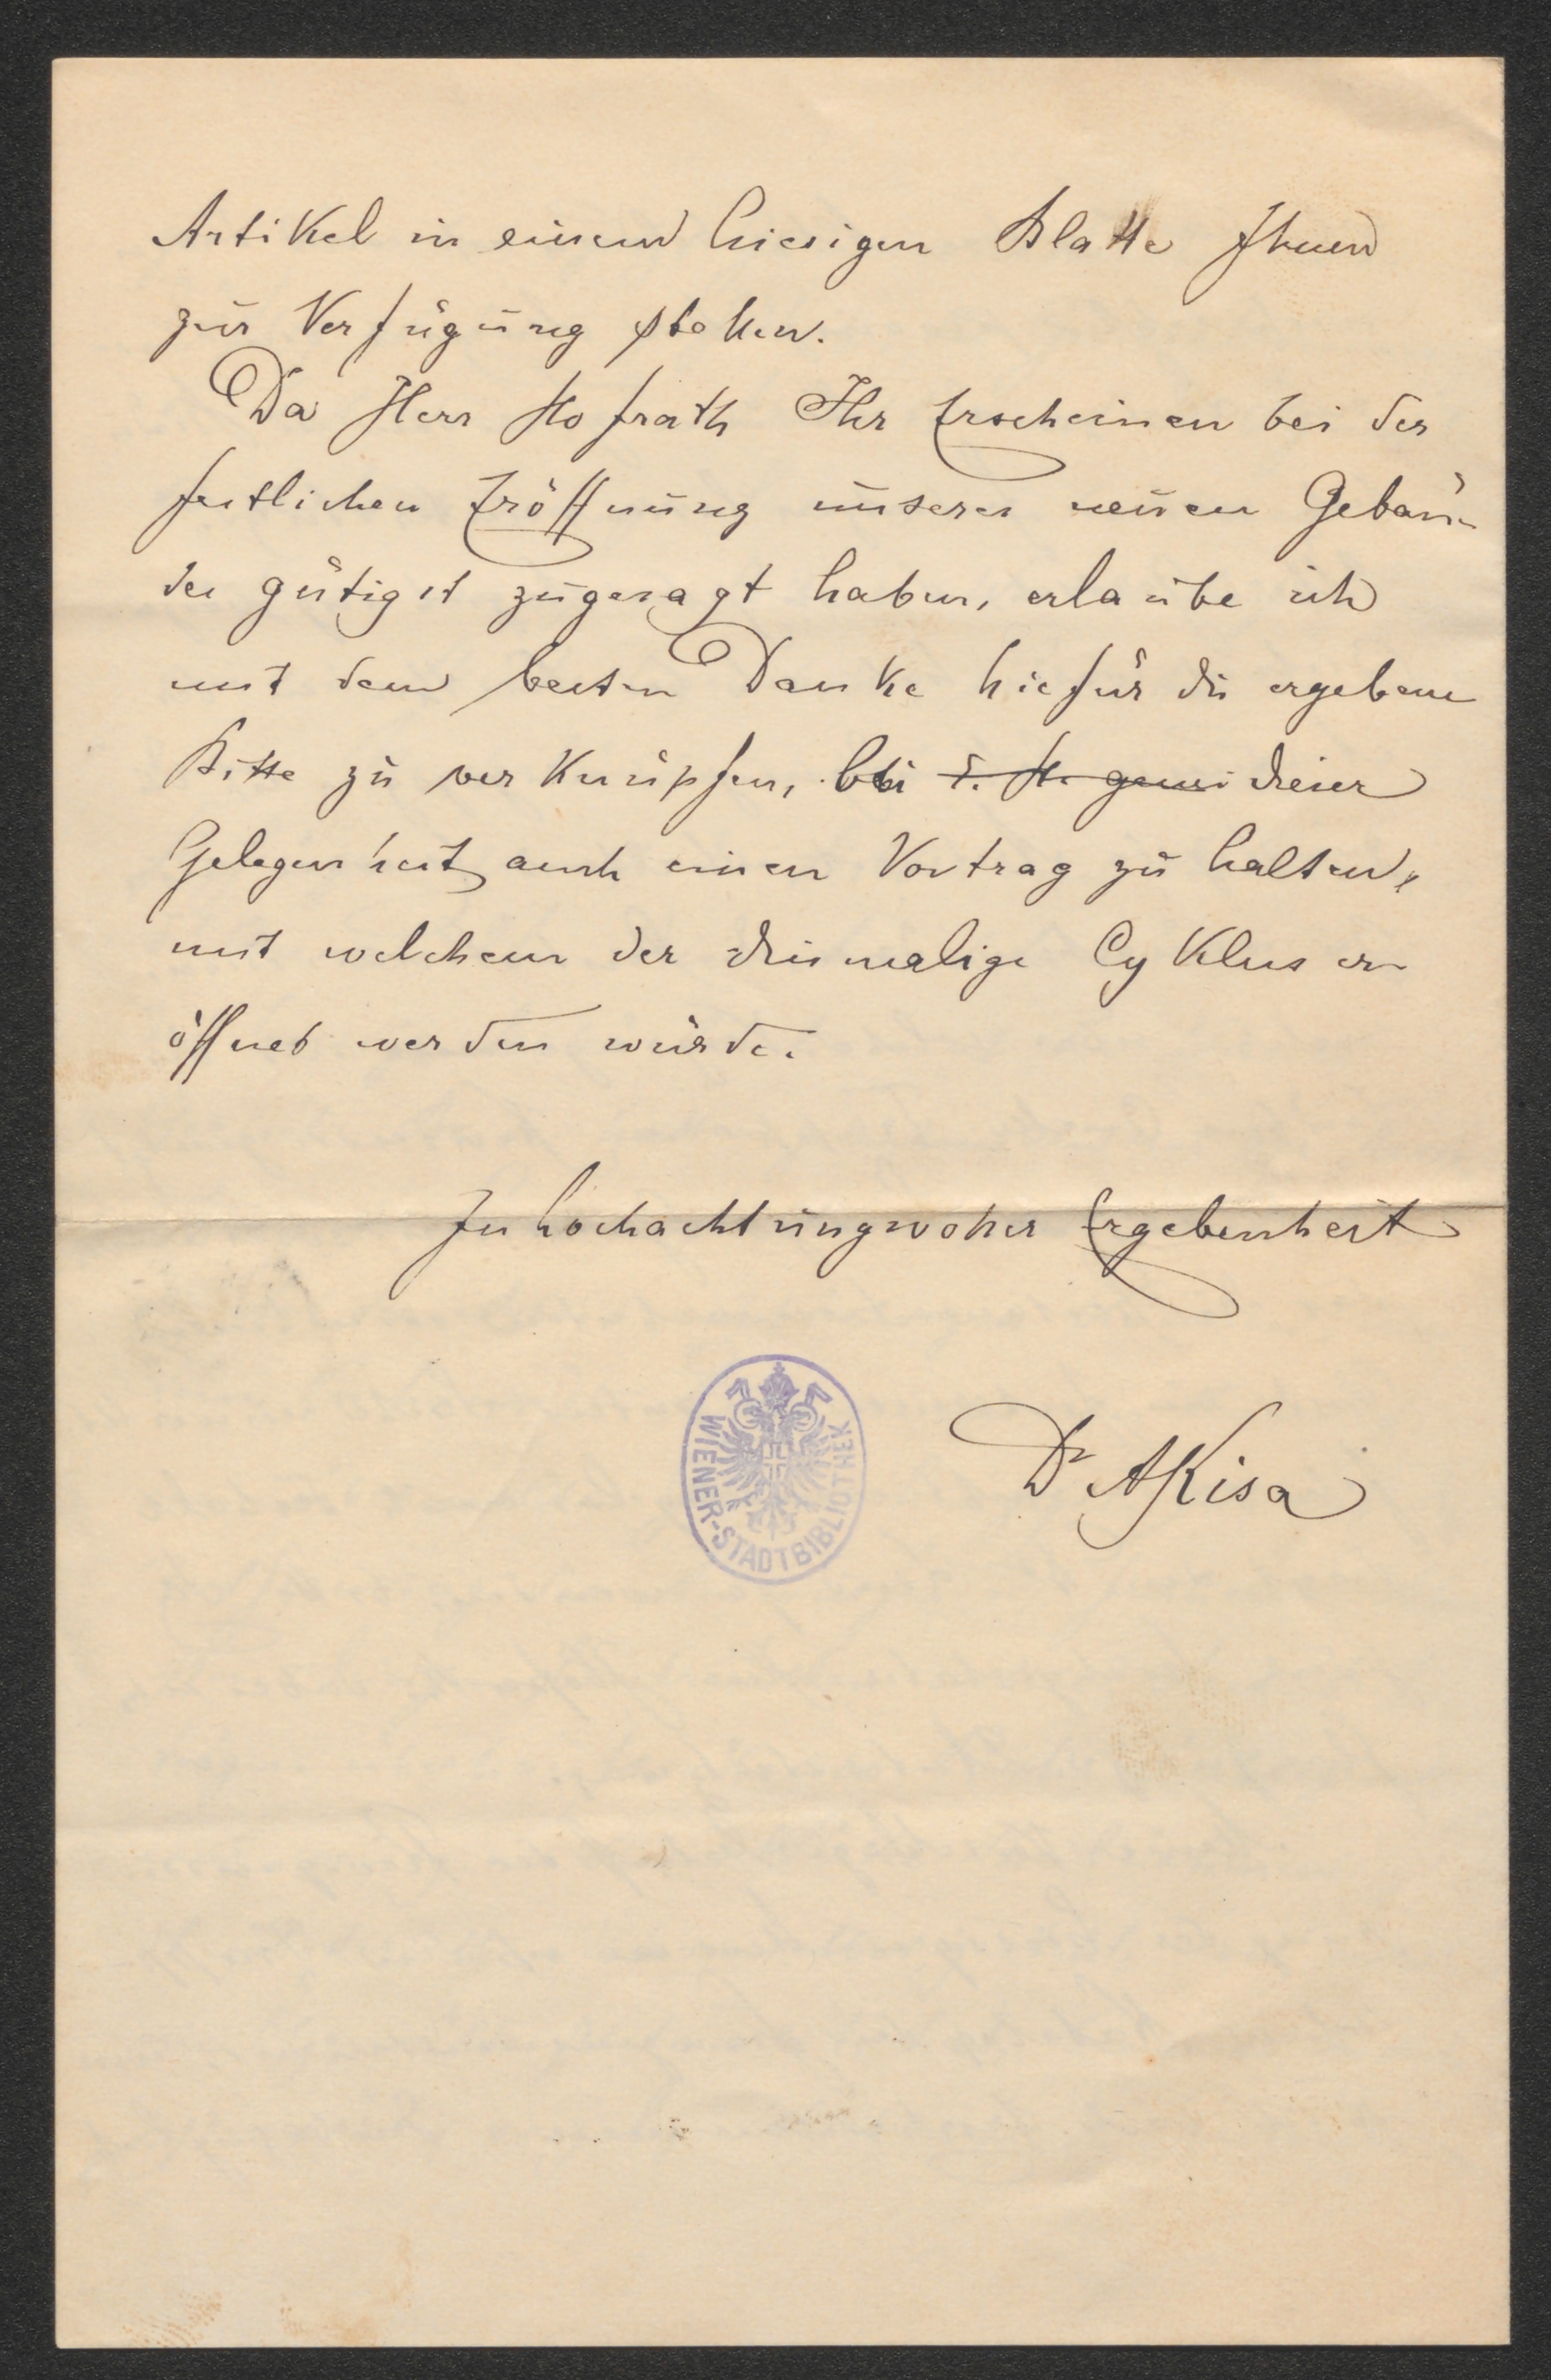 Artikel in einem hiesigen Blatte Ihnen
zur Verfügung stehen.
Da Herr Hofrath Ihr Erscheinen bei der
festlichen Eröffnung unseres neuen Gebäu-
des gütigst zugesagt haben, erlaube ich
mit dem besten Danke hiefür die ergebene
Bitte zu verknüpfen, bei dieser
Gelegenheit auch einen Vortrag zu halten,
mit welchem der diesmalige Cyklus er-
öffnet werden würde.
In hochachtungsvoller Ergebenheit
Dr AKisa
WIENER-STADTBIBLIOTHEK